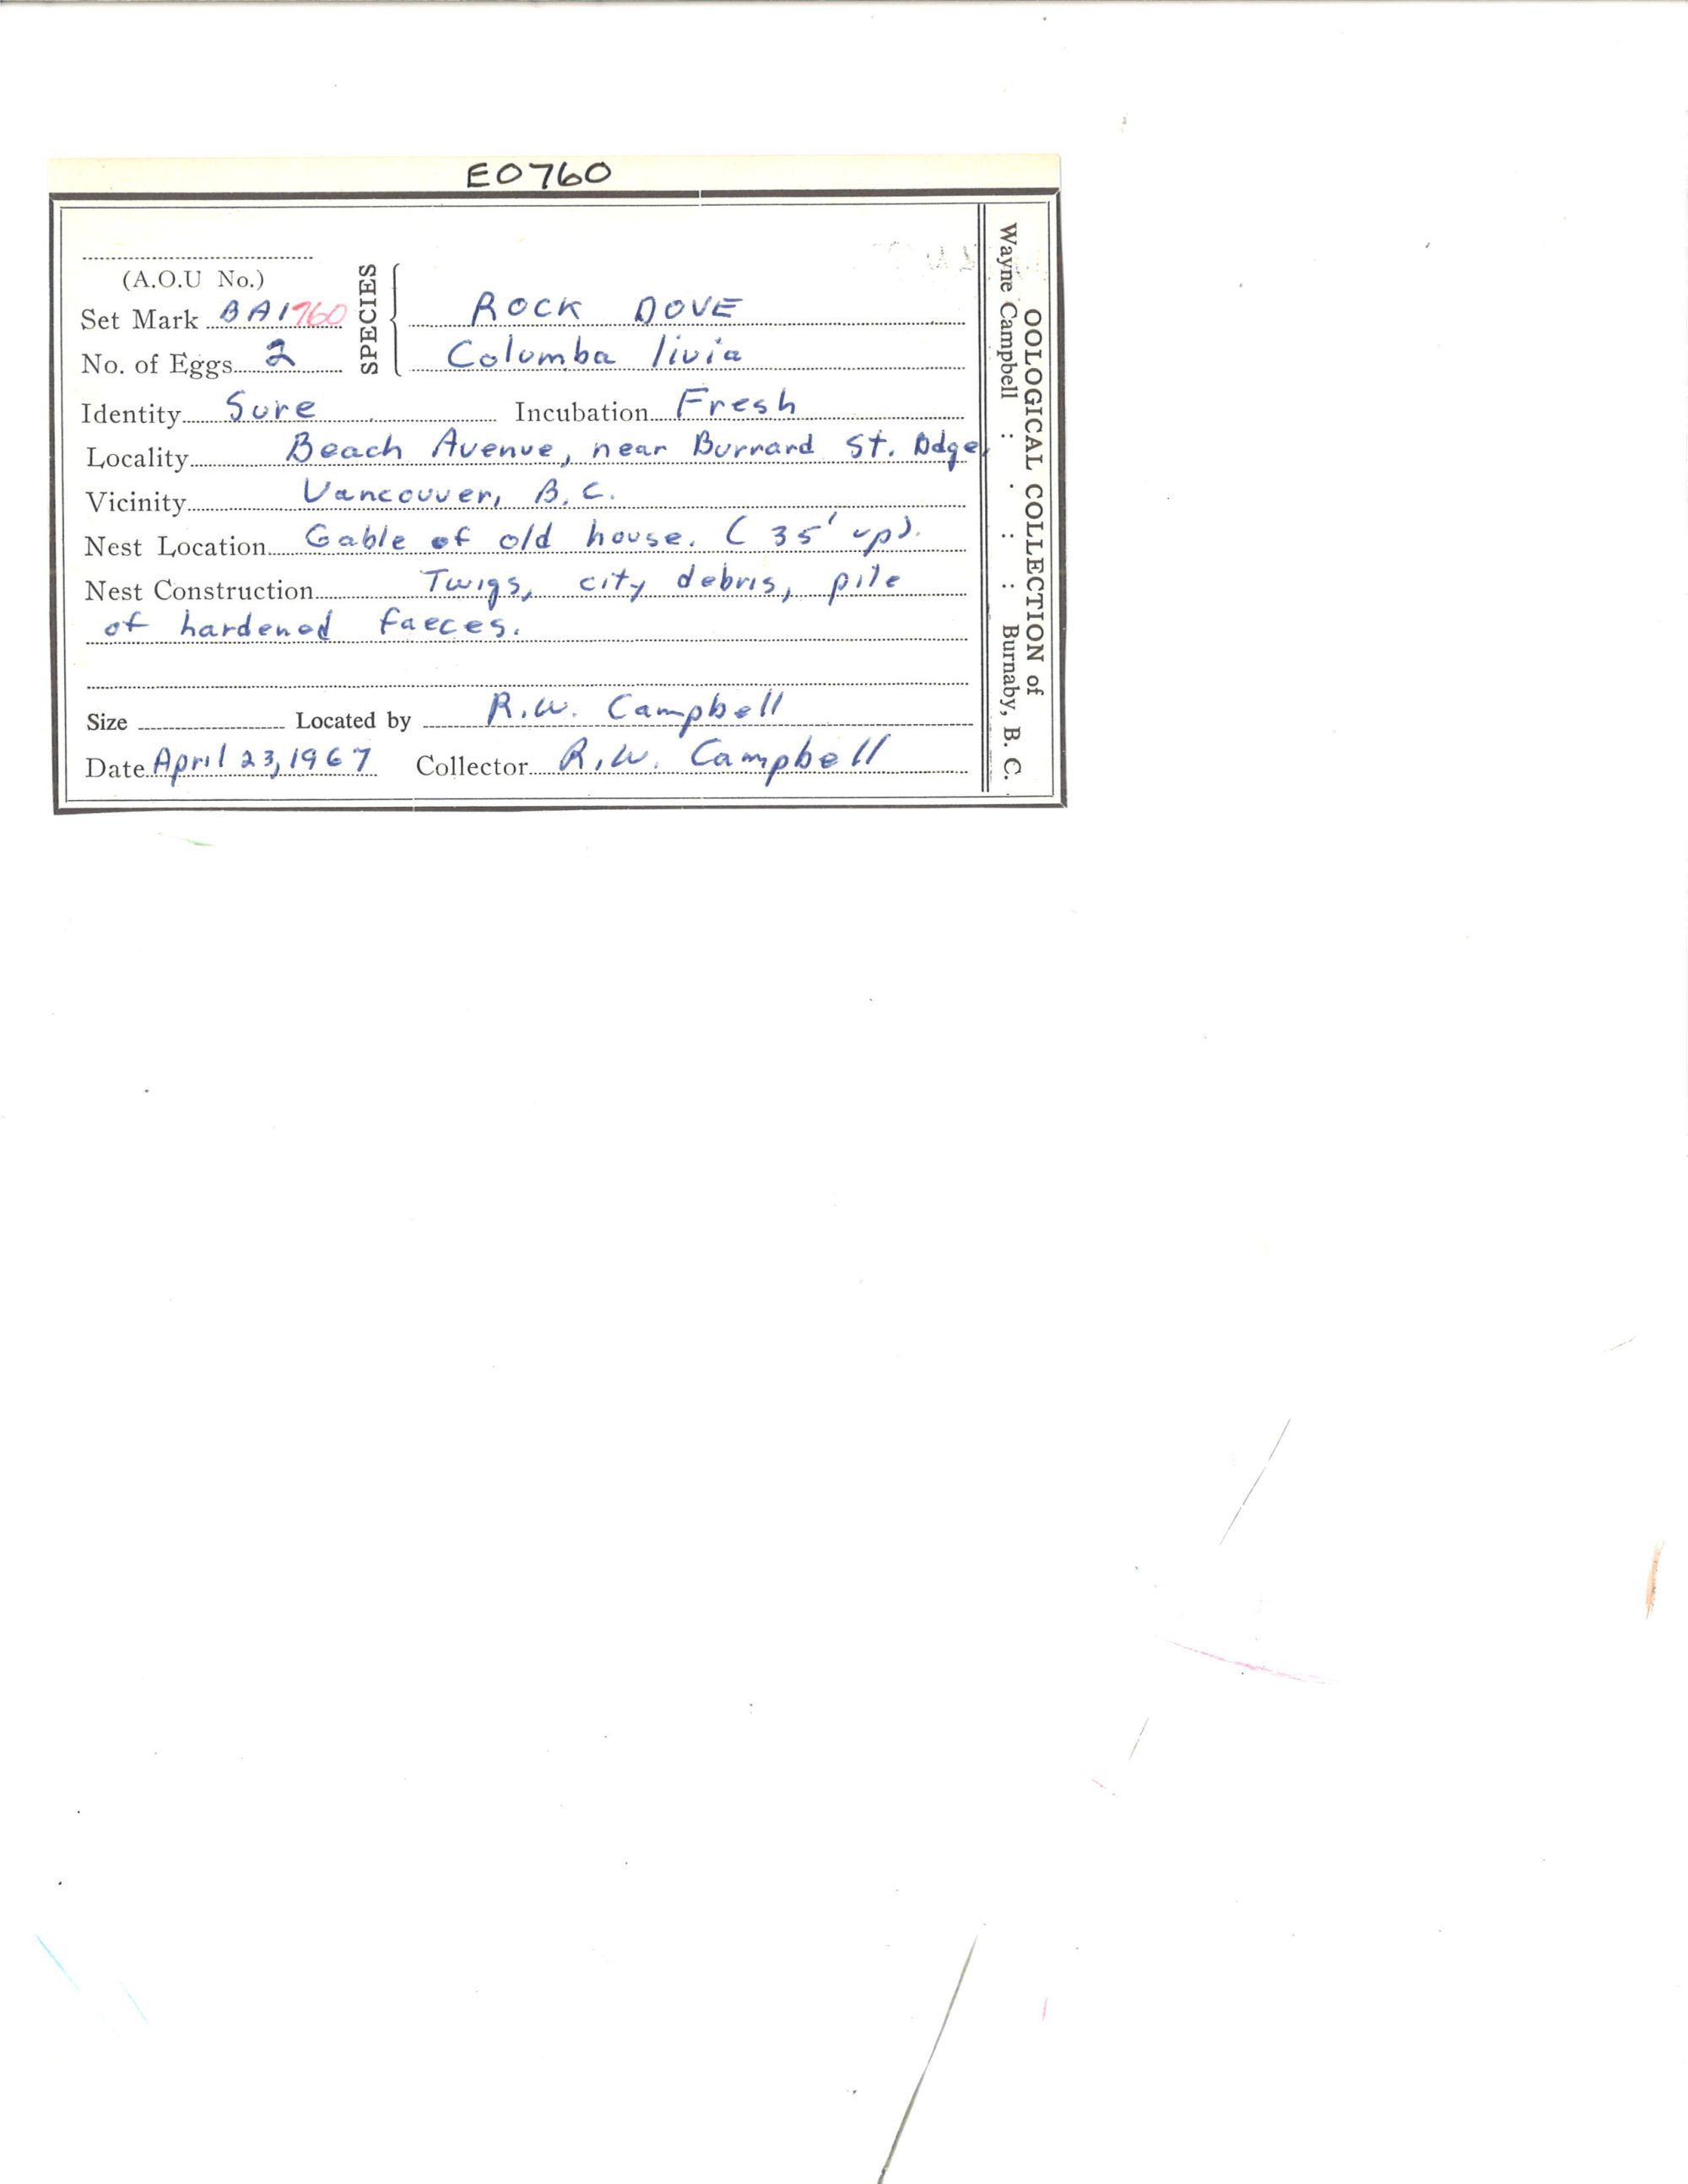 E0760
(A.O.U No.)
Set Mark BA1760
No. of Eggs 2
SPECIES
ROCK DOVE
Columba livia
Identity Sure Incubation Fresh
Locality Beach Avenue, near Burrard St. Bdge,
Vicinity Vancouver, B.C.
Nest Location Gable of old house. (35' up).
Nest Construction Twigs, city debris, pile
of hardened faeces.
Size Located by R.W. Campbell
Date April 23, 1967 Collector R.W. Campbell
OOLOGICAL COLLECTION of
Wayne Campbell : : : Burnaby, B. C.